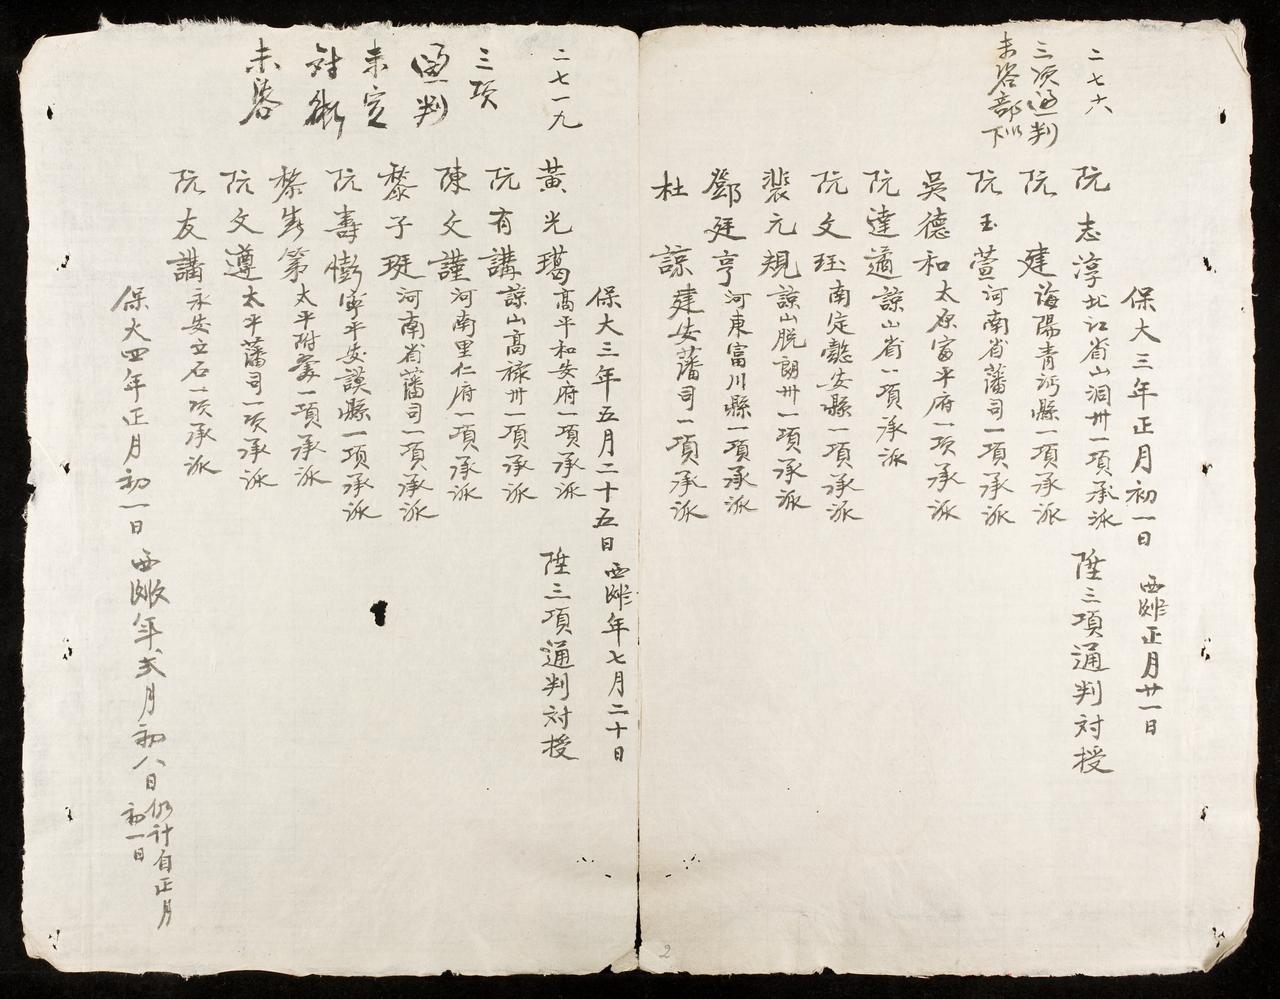 二七六
三項通判
未咨部下以
保大三年正月初一日 西曆正月廿一日
阮志淳北江省山洞州一項承派 陞三項通判対授
阮建海陽青河縣一項承派
阮玉萱河南省藩司一項承派
吳德和太原富平府一項承派
阮達適諒山省一項承派
阮文珏南定懿安縣一項承派
裴元規諒山脫朗州一項承派
鄧廷亨河東富川縣一項承派
杜諒建安藩司一項承派
二七一九
三項
通判
未定
対銜
未咨
保大三年五月二十五日 西曆年七月二十日
黃光璣高平和安府一項承派 陞三項通判対授
阮有講諒山高祿州一項承派
陳文謹河南里仁府一項承派
黎子珽河南省藩司一項承派
阮壽膨寧平安謨縣一項承派
黎春第太平附翼一項承派
阮文遵太平藩司一項承派
阮友講永安立石一項承派
保大四年正月初一日 西曆年弍月初八日仍計自正月初一日
2